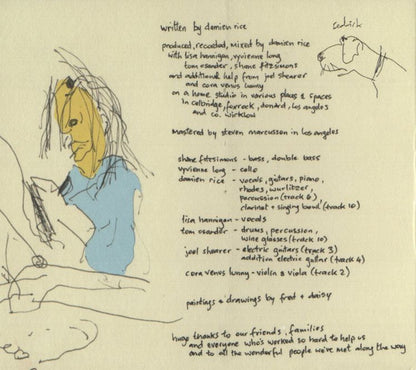 written by damien rice
sedrick
produced, recorded, mixed by damien rice
with lisa hannigan, vyvienne long
tom osander, shane fitzsimons
and additional help from joel shearer
and cora venus lunny
on a home studio in various places & spaces
in celbridge, foxrock, donard, los angeles
and co. wicklow
mastered by steven marcussen in los angeles
shane fitzsimons - bass, double bass
vyvienne long - cello
damien rice - vocals, guitars, piano,
rhodes, wurlitzer,
percussion (track 6),
clarinet + singing bowl (track 10)
lisa hannigan - vocals
tom osander - drums, percussion,
wine glasses (track 10)
joel shearer - electric guitars (track 3)
addition electric guitar (track 4)
cora venus lunny - violin & viola (track 2)
paintings & drawings by fred & daisy
huge thanks to our friends, families
and everyone who's worked so hard to help us
and to all the wonderful people we've met along the way